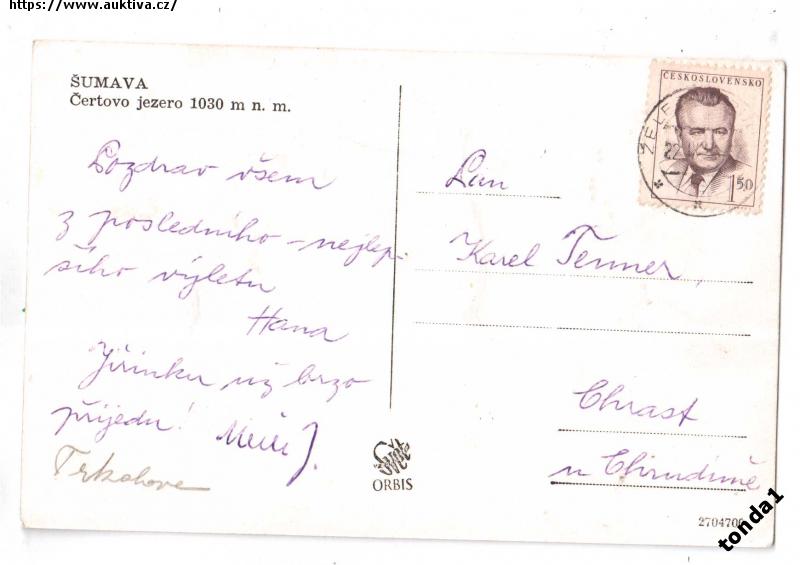 https://www.auktiva.cz/
ŠUMAVA
Čertovo jezero 1030 m n. m.
Pozdrav všem
z posledního – nejlep-
šího výletu
Hana
Jiřinku už brzo
přijedu!
Trkalova
ČESKOSLOVENSKO
1 50
ŽELE
22
Pan
Karel Tenner,
Chrast
u Chrudimě
ORBIS
2704706
tonda1